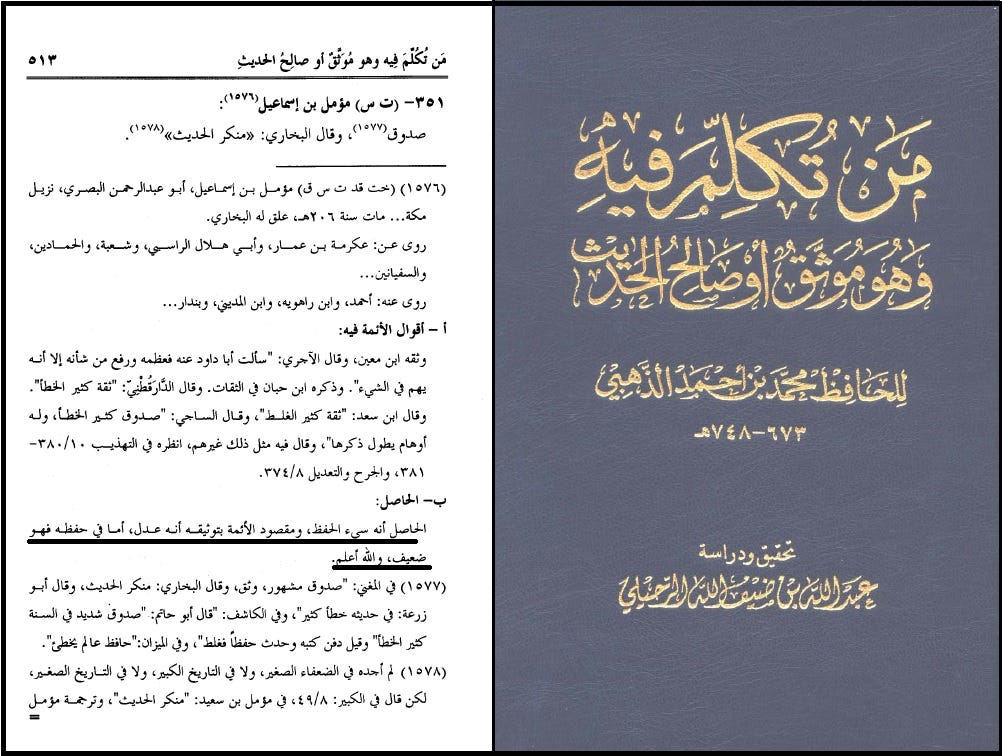 مَن تُكُلِّمَ فِيه وهو مُوَثَّقٌ أو صالِحُ الحديثِ ٥١٣
٣٥١- (ت س) مؤمل بن إسماعيل(١٥٧٦):
صدوق(١٥٧٧)، وقال البخاري: «منكر الحديث»(١٥٧٨).
(١٥٧٦) (خت قد ت س ق) مؤمـل بـن إسمـاعيل، أبـو عبدالرحمـن البصـري، نزيـل
مكة... مات سنة ٢٠٦هـ، علق له البخاري.
روى عـن: عكرمـة بـن عمـار، وأبـي هـلال الراسـبي، وشـعبة، والحمـادين،
والسفيانين...
روى عنه: أحمد، وابن راهويه، وابن المديني، وبندار...
أ - أقوال الأئمة فيه:
وثقه ابن معين، وقال الآجري: "سألت أبا داود عنه فعظمه ورفع من شأنه إلا أنـه
يهم في الشيء". وذكره ابن حبان في الثقات. وقال الدَّارقُطْنِيّ: "ثقة كثير الخطأ".
وقال ابن سعد: "ثقة كثير الغلـط"، وقـال الساجي: "صـدوق كثـير الخطـأ، ولـه
أوهام يطول ذكرها"، وقال فيه مثل ذلك غيرهم، انظره في التهذيـب ٣٨٠/١٠-
٣٨١، والجرح والتعديل ٣٧٤/٨.
ب- الحاصل:
الحاصل أنه سيء الحفظ، ومقصود الأئمة بتوثيقـه أنـه عـدل، أمـا في حفظـه فهـو
ضعيف، والله أعلم.
(١٥٧٧) في المغني: "صدوق مشهور، وثق، وقال البخاري: منكر الحديث، وقال أبـو
زرعة: في حديثه خطأ كثير"، وفي الكاشف: "قال أبو حاتم: "صدوق شديد في السنة
كثير الخطأ" وقيل دفن كتبه وحدث حفظاً فغلط"، وفي الميزان:"حافظ عالم يخطئ".
(١٥٧٨) لم أجده في الضعفاء الصغير، ولا في التاريخ الكبير، ولا في التـاريخ الصغـير،
لكن قال في الكبير: ٤٩/٨، في مؤمل بن سعيد: "منكر الحديث"، وترجمـة مؤمـل
=
مَن تُكُلِّمَ فِيهِ
وَهُوَ مُوَثَّقٌ أو صَالِحُ الحَدِيثِ
لِلحَافِظِ مُحَمَّد بْن أَحْمَد الذَّهَبِيّ
٦٧٣-٧٤٨هـ
تحقيق ودراسة
عبد الله بن ضيف الله الرحيلي